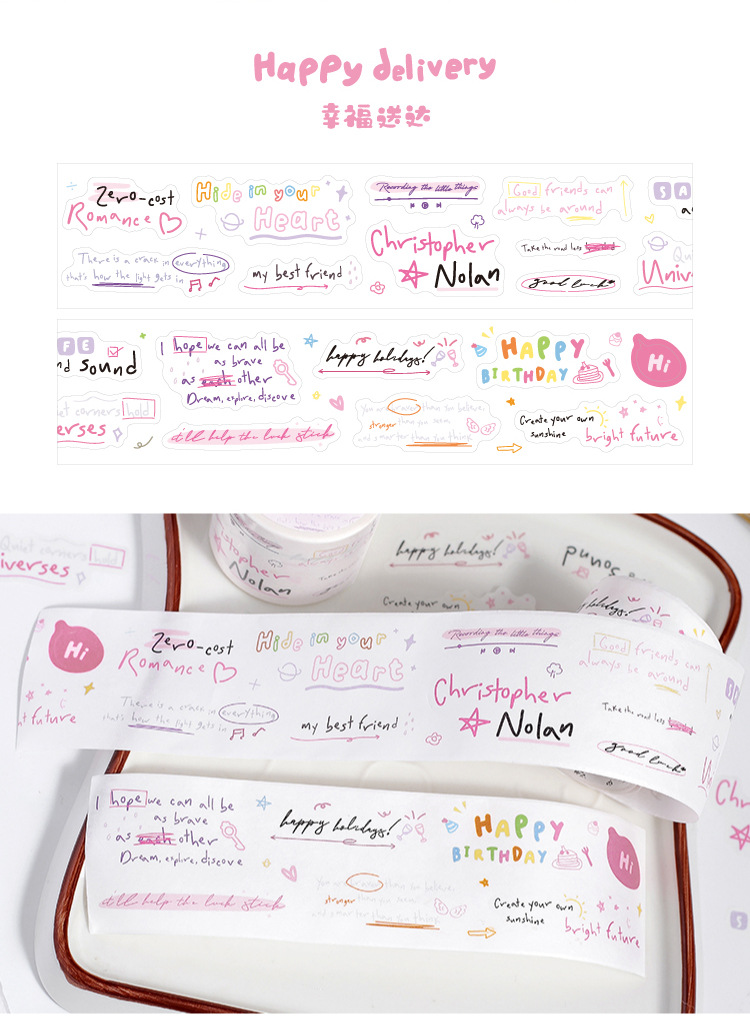 Happy delivery
幸福送达
Zero-cost
Romance
Hide in your
Heart
Recording the little things
Good friends can
always be around
SA
There is a crack in everything
that's how the light gets in
my best friend
Christopher
Nolan
Take the road less
good luck
Univ
FE
nd sound
I hope we can all be
as brave
as each other
Dream, explore, discove
happy holidays!
HAPPY
BIRTHDAY
Hi
uiet corners hold
erses
it'll help the luck stick
You are braver than you believe,
stronger than you seem
and smarter than you think
Create your own
sunshine
bright future
Quiet corners hold
iverses
stopher
Nolan
happy holidays!
sound
Create your own
Hi
Zero-cost
Romance
Hide in your
Heart
Recording the little things
Good friends can
always be around
t future
There is a crack in everything
that's how the light gets in
my best friend
Christopher
Nolan
Take the road less
good luck
Un
I hope we can all be
as brave
as each other
Dream, explore, discove
happy holidays!
HAPPY
BIRTHDAY
Hi
it'll help the luck stick
You are braver than you believe,
stronger than you seem
and smarter than you think
Create your own
sunshine
bright future
Ch